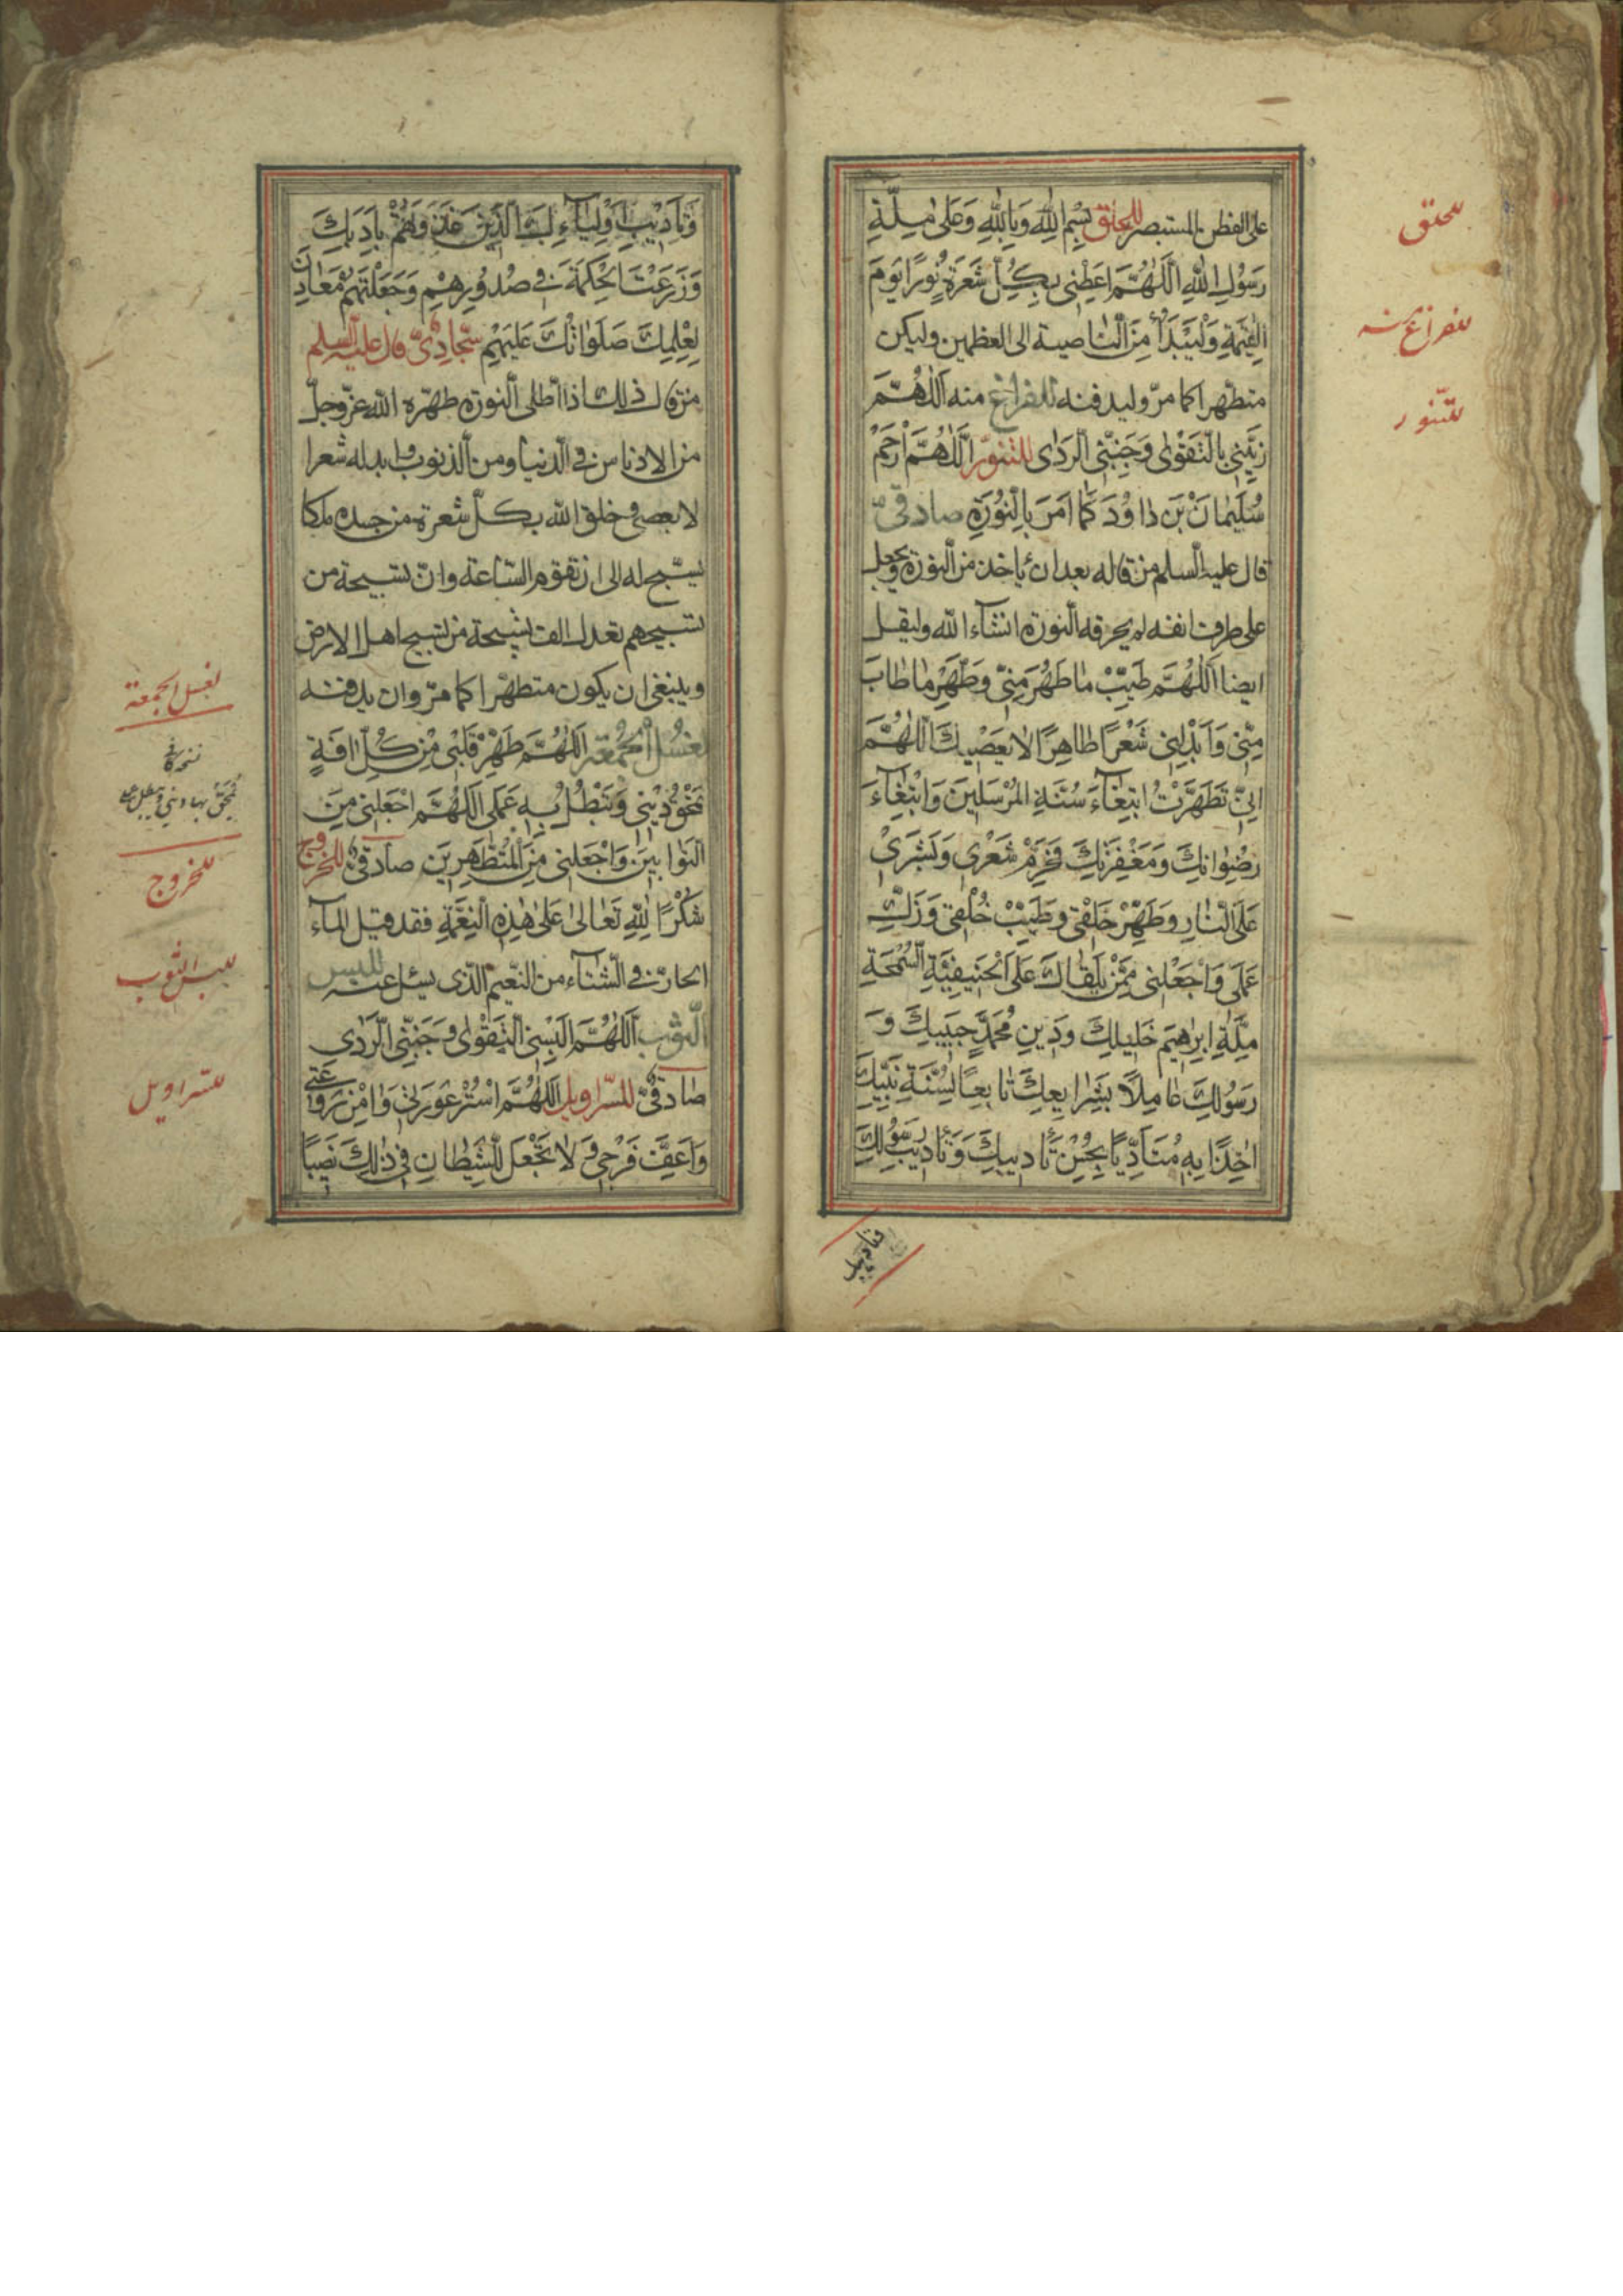 على الفطن المستبصر للحلق بِسْمِ اللهِ وَبِاللهِ وَعَلىٰ مِلَّةِ
رَسُولِ اللهِ اَللّٰهُمَّ اَعْطِنى بِكُلِّ شَعْرَةٍ نُورًا يَوْمَ
الْقِيٰمَةِ وَلْيَبْدَأْ مِنَ النّاصية الى العظمين وليكن
متطهرا كما مرّ وليدفنه للفراغ منه اَللّٰهُمَّ
زَيِّنّى بِالتَّقْوٰى وَجَنِّبْنِى الرَّدٰى للتنوّر اَللّٰهُمَّ ارْحَمْ
سُلَيْمٰانَ بْنَ دٰاوُدَ كَمٰا اَمَرَ بِالنُّورَةِ صادقىّ
قال عليه السلم من قاله بعد ان ياخذ من النورة ويجعل
على طرف انفه لم يحرقه النورة انشآء الله وليقل
ايضا اَللّٰهُمَّ طَيِّبْ مٰا طَهُرَ مِنّى وَطَهِّرْ مٰا طٰابَ
مِنّى وَاَبْدِلْنى شَعْرًا طٰاهِرًا لا يَعْصيكَ اَللّٰهُمَّ
اِنّى تَطَهَّرْتُ ابْتِغٰآءَ سُنَّةِ الْمُرْسَلينَ وَابْتِغٰآءَ
رِضْوٰانِكَ وَمَغْفِرَتِكَ فَحَرِّمْ شَعْرى وَبَشَرى
عَلَى النّٰارِ وَطَهِّرْ خَلْقى وَطَيِّبْ خُلْقى وَزَكِّ
عَمَلى وَاجْعَلْنى مِمَّنْ يَلْقٰاكَ عَلَى الْحَنيفِيَّةِ السَّمْحَةِ
مِلَّةِ اِبْرٰهيمَ خَليلِكَ وَدينِ مُحَمَّدٍ حَبيبِكَ وَ
رَسُولِكَ عٰامِلاً بِشَرٰايِعِكَ تٰابِعًا لِسُنَّةِ نَبِيِّكَ
اٰخِذًا بِهِ مُتَأَدِّبًا بِحُسْنِ تَأْديبِكَ وَتَأْديبِ رَسُولِكَ
للحلق
للفراغ منه
للتنور
وَتَأْديبِ اَوْلِيٰآءِكَ الَّذينَ غَذَوْتَهُمْ بِاَدَبِكَ
وَزَرَعْتَ الْحِكْمَةَ فى صُدُورِهِمْ وَجَعَلْتَهُمْ مَعٰادِنَ
لِعِلْمِكَ صَلَوٰاتُكَ عَلَيْهِمْ سجّادىّ قال عليه السلم
من قال ذلك اذا اطلى النورة طهّره الله عزّوجلّ
من الادناس فى الدنيا ومن الذنوب وابدله شعرا
لا يعصى وخلق الله بكلّ شعرة من جسده ملكا
يسبّح له الى ان تقوم السّاعة وانّ تسبيحة من
تسبيحهم تعدل الف تسبيحة من تسبيح اهل الارض
وينبغى ان يكون متطهّرا كما مرّ وان يدفنه
لغسل الجمعة اَللّٰهُمَّ طَهِّرْ قَلْبى مِنْ كُلِّ اٰفَةٍ
تَمْحَقُ دينى وَتُبْطِلُ بِهِ عَمَلى اَللّٰهُمَّ اجْعَلْنى مِنَ
التَّوّٰابينَ وَاجْعَلْنى مِنَ الْمُتَطَهِّرينَ صادقىّ للخروج
شُكْرًا لِلّٰهِ تَعٰالىٰ عَلىٰ هٰذِهِ النِّعْمَةِ فقد قيل المآء
الحارّ فى الشّتآء من النّعيم الّذى يسئل عنه للبس
الثوب اَللّٰهُمَّ اَلْبِسْنِى التَّقْوٰى وَجَنِّبْنِى الرَّدٰى
صادقىّ للسّراويل اَللّٰهُمَّ اسْتُرْ عَوْرَتى وَاٰمِنْ رَوْعَتى
وَاَعِفَّ فَرْجى وَلٰا تَجْعَلْ لِلشَّيْطٰانِ فى ذٰلِكَ نَصيبًا
لغسل الجمعة
تمحق بها دينى وتبطل
للخروج
للبس الثوب
للسراويل
وتأديب